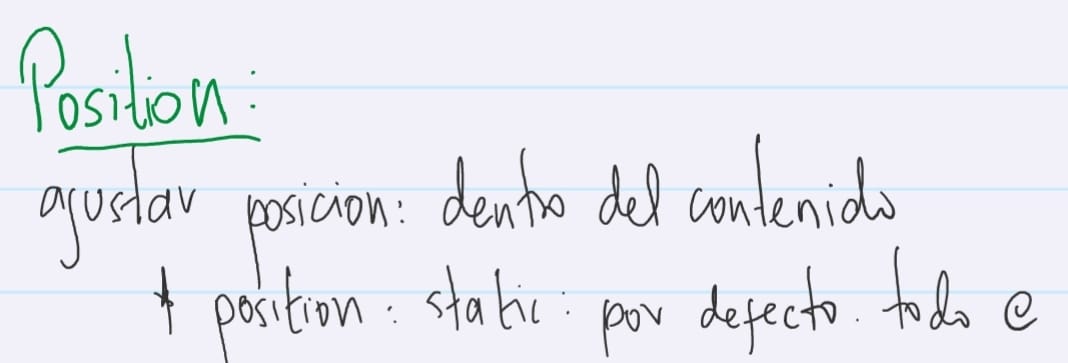 Position:
ajustar posicion: dentro del contenido
* position: static: por defecto. todo e